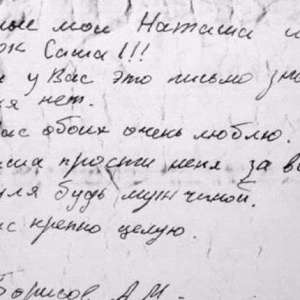 ные мои Наташа и
ок Саша!!!
и у Вас это письмо зна
я нет.
ас обоих очень люблю.
аша прости меня за в
уля будь мужчиной.
с крепко целую.
Борисов А.М.